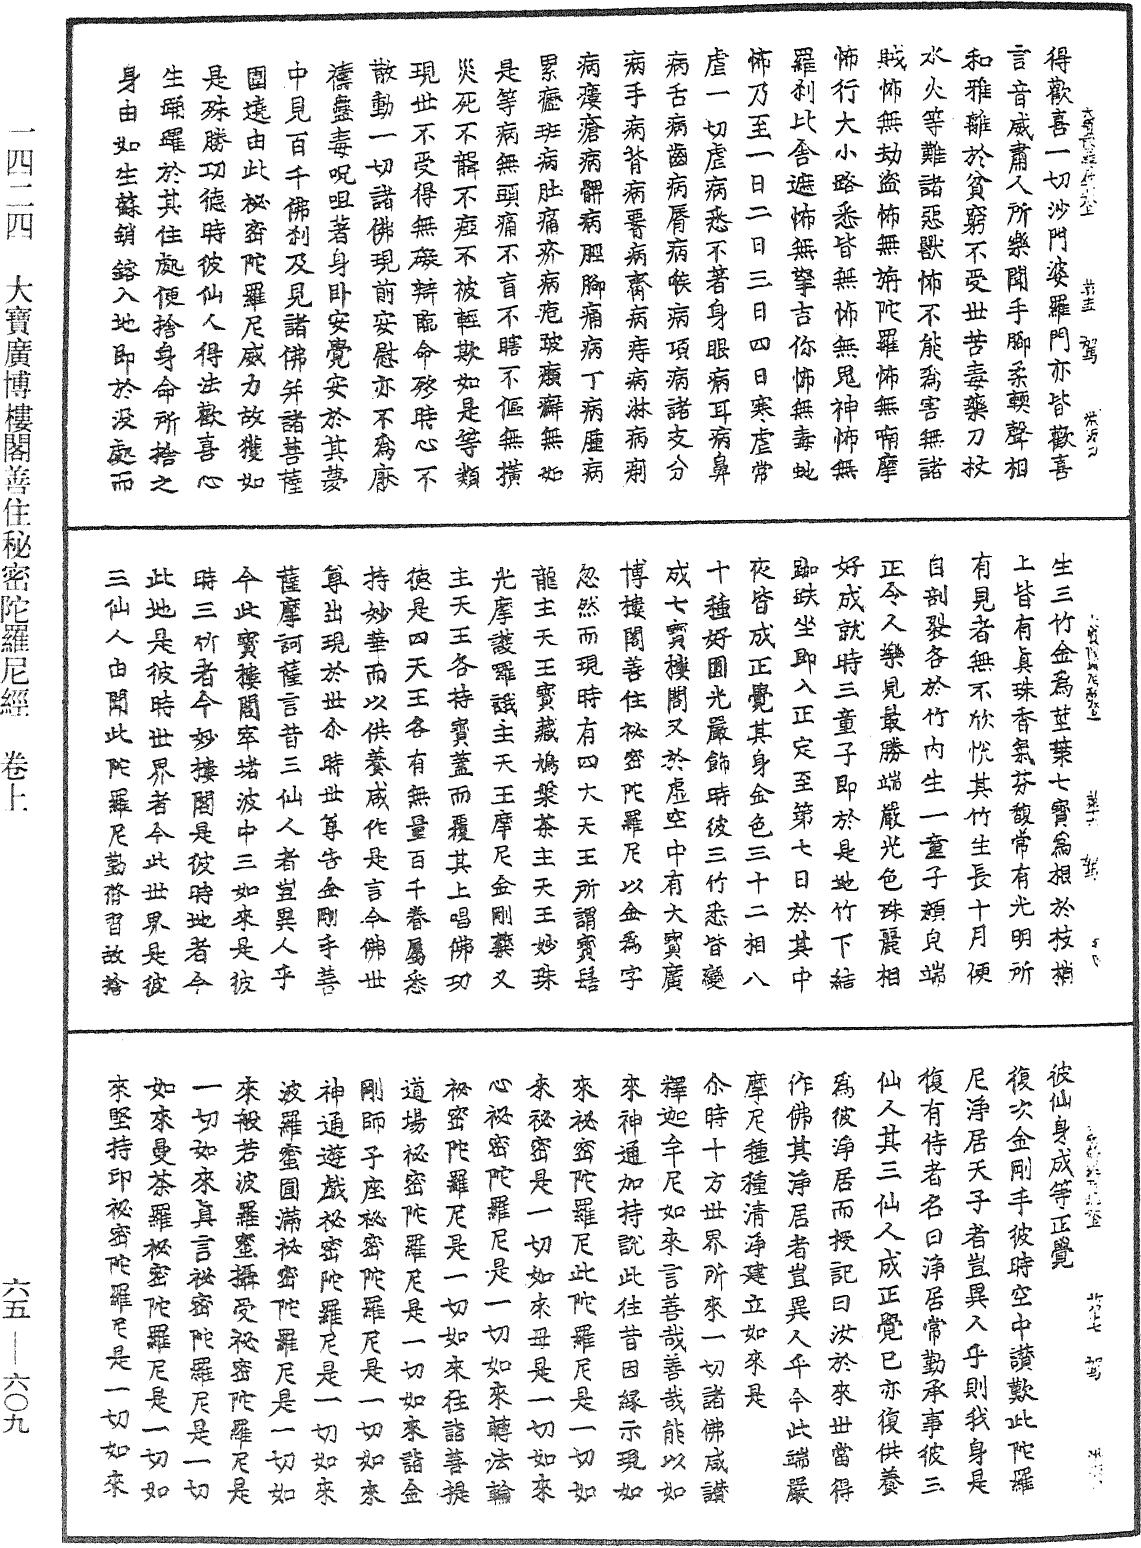 得歡喜一切沙門婆羅門亦皆歡喜
言音威肅人所樂聞手腳柔軟聲相
和雅離於貧窮不受世苦毒藥刀杖
水火等難諸惡獸怖不能為害無諸
賊怖無劫盜怖無旃陀羅怖無喃摩
怖行大小路悉皆無怖無鬼神怖無
羅剎比舍遮怖無拏吉你怖無毒虵
怖乃至一日二日三日四日寒虐常
虐一切虐病悉不著身眼病耳病鼻
病舌病齒病脣病喉病項病諸支分
病手病背病䜿病齎病痔病淋病痢
病瘻瘡病髀病脛腳痛病丁病腫病
累癧斑病肚痛疥病疱玻癩癬無如
是等病無頭痛不盲不瞎不傴無橫
災死不聾不瘂不被輕欺如是等類
現世不受得無礙辯臨命終時心不
散動一切諸佛現前安慰亦不為厭
禱蠱毒呪咀著身卧安覺安於其夢
中見百千佛剎及見諸佛并諸菩薩
圍遶由此祕密陀羅尼威力故獲如
是殊勝功德時彼仙人得法歡喜心
生踊躍於其住處便捨身命所捨之
身由如生蘇銷鎔入地即於没處而
生三竹金為莖葉七寶為根於枝梢
上皆有真珠香氣芬馥常有光明所
有見者無不欣悅其竹生長十月便
自剖裂各於竹內生一童子顏皃端
正令人樂見最勝端嚴光色殊麗相
好成就時三童子即於是地竹下結
跏趺坐即入正定至第七日於其中
夜皆成正覺其身金色三十二相八
十種好圓光嚴飾時彼三竹悉皆變
成七寶樓閣又於虛空中有大寶廣
博樓閣善住祕密陀羅尼以金為字
忽然而現時有四大天王所謂寶髻
龍主天王寶藏鳩槃茶主天王妙珠
光摩護羅誐主天王摩尼金剛藥叉
主天王各持寶蓋而覆其上唱佛功
德是四天王各有無量百千眷屬悉
持妙華而以供養咸作是言今佛世
尊出現於世尒時世尊告金剛手菩
薩摩訶薩言昔三仙人者豈異人乎
今此寶樓閣窣堵波中三如來是彼
時三竹者今妙樓閣是彼時地者今
此地是彼時世界者今此世界是彼
三仙人由聞此陀羅尼勤脩習故捨
彼仙身成等正覺
復次金剛手彼時空中讚歎此陀羅
尼淨居天子者豈異人乎則我身是
復有侍者名曰淨居常勤承事彼三
仙人其三仙人成正覺已亦復供養
為彼淨居而授記曰汝於來世當得
作佛其淨居者豈異人乎今此端嚴
摩尼種種清淨建立如來是
尒時十方世界所來一切諸佛咸讚
釋迦牟尼如來言善哉善哉能以如
來神通加持說此往昔因緣示現如
來祕密陀羅尼此陀羅尼是一切如
來祕密是一切如來母是一切如來
心祕密陀羅尼是一切如來轉法輪
祕密陀羅尼是一切如來往詣菩提
道場祕密陀羅尼是一切如來詣金
剛師子座祕密陀羅尼是一切如來
神通遊戲祕密陀羅尼是一切如來
波羅蜜圓滿祕密陀羅尼是一切如
來般若波羅蜜攝受祕密陀羅尼是
一切如來真言祕密陀羅尼是一切
如來曼荼羅祕密陀羅尼是一切如
來堅持印祕密陀羅尼是一切如來
一四二四 大寶廣博樓閣善住秘密陀羅尼經 卷上
六五—六〇九